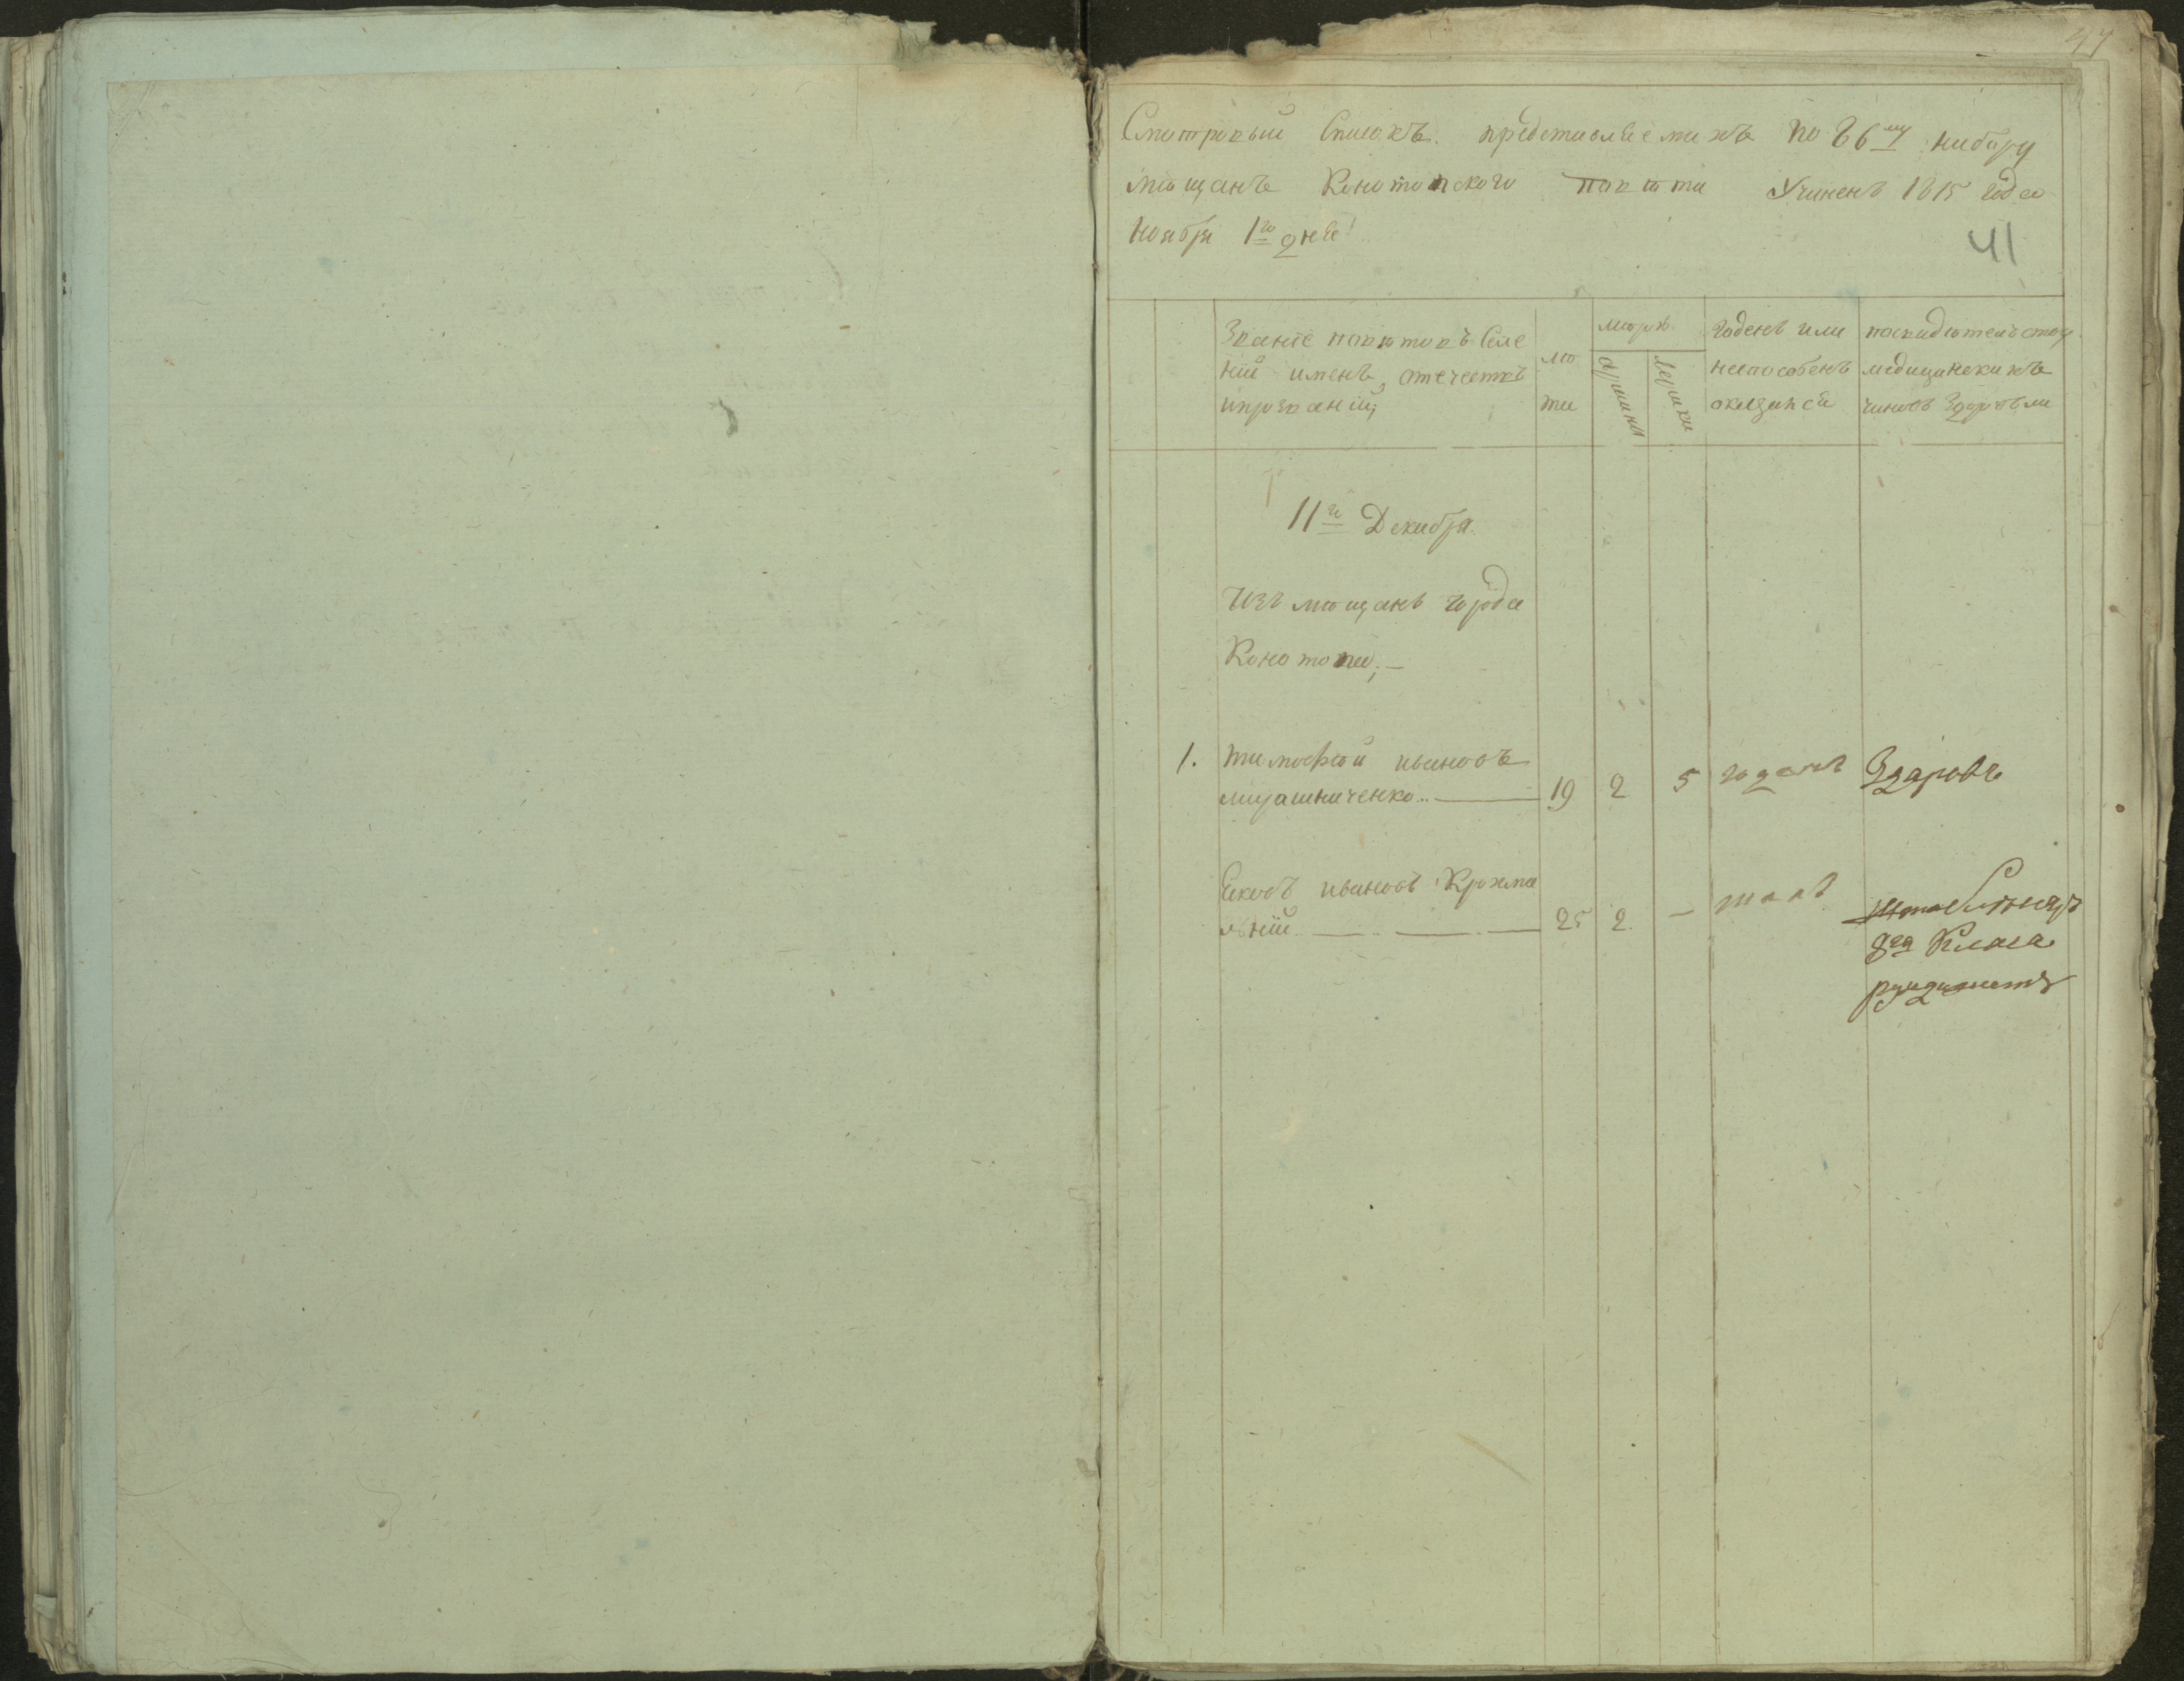 47
Смотровый Списокъ представляемихъ по 86му набору
мѣщанъ Конотопского повѣта Учиненъ 1815 года
Ноября 1го дня
41
Званіе повѣтовъ Селе
ній именъ, отечествъ
ипрозваній;
лѣ
та
мѣра
аршины
вершки
годенъ или
неспособенъ
оказался
посвидѣтельству
медицинскихъ
чиновъ Здоровъли
11го Декабря
Изъ мѣщанъ города
Конотопа;
1. тимофѣй ивановъ
мирашниченко 19 2 5 годенъ Здаровъ
Яковъ ивановъ Крохма
лній 25 2 —
8га Класа